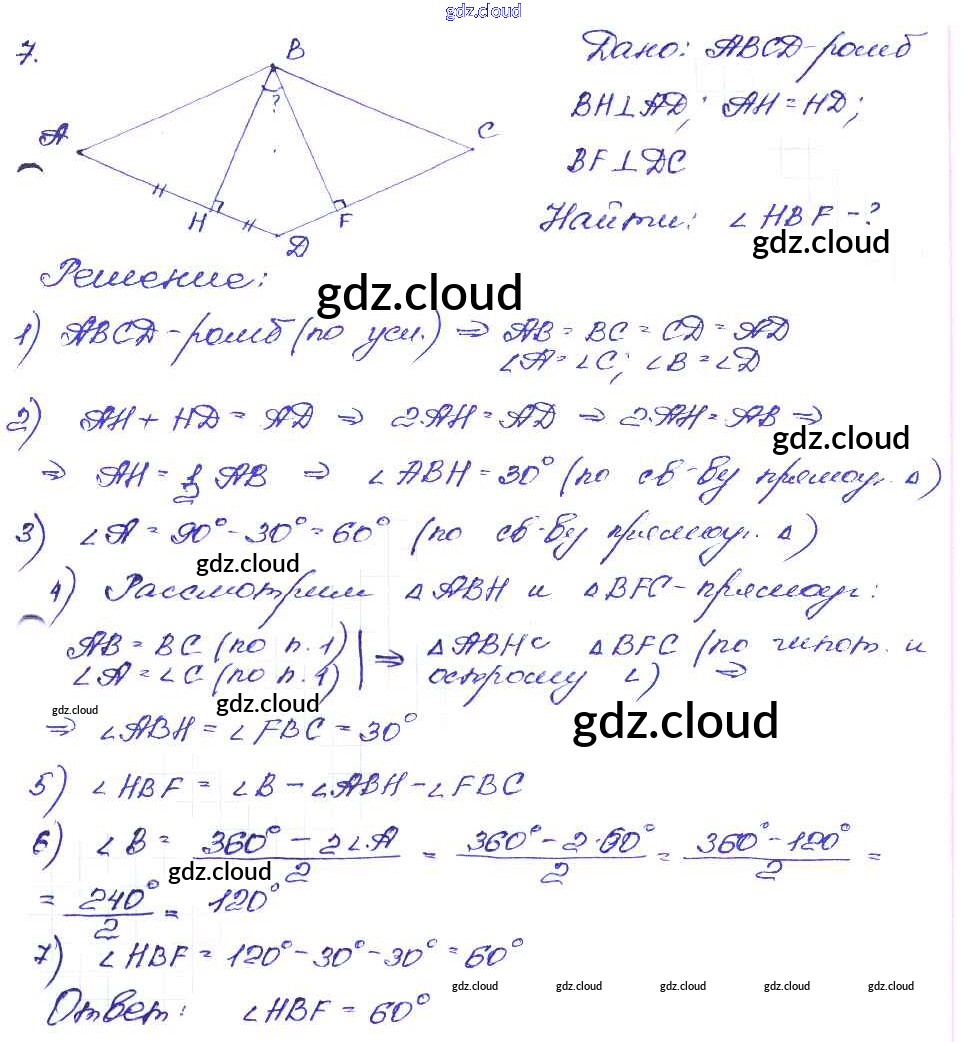 gdz.cloud
7.
B
?
A
C
H
F
D
Дано: ABCD-ромб
BH⊥AD; AH=HD;
BF⊥DC
Найти: ∠HBF-?
gdz.cloud
Решение:
gdz.cloud
1) ABCD-ромб (по усл.) ⇒ AB = BC = CD = AD
∠A = ∠C; ∠B = ∠D
2) AH + HD = AD ⇒ 2·AH = AD ⇒ 2·AH = AB ⇒
gdz.cloud
⇒ AH = 1/2 AB ⇒ ∠ABH = 30° (по св-ву прямоуг. △)
3) ∠A = 90°-30° = 60° (по св-ву прямоуг. △)
gdz.cloud
4) Рассмотрим △ABH и △BFC-прямоуг:
AB = BC (по п.1) | ⇒ △ABH = △BFC (по гипот. и
∠A = ∠C (по п.1) | острому ∠) ⇒
gdz.cloud gdz.cloud gdz.cloud
⇒ ∠ABH = ∠FBC = 30°
5) ∠HBF = ∠B - ∠ABH - ∠FBC
6) ∠B = (360° - 2∠A)/2 = (360° - 2·60°)/2 = (360° - 120°)/2 =
gdz.cloud
= 240°/2 = 120°
7) ∠HBF = 120° - 30° - 30° = 60°
gdz.cloud gdz.cloud gdz.cloud gdz.cloud gdz.cloud
Ответ: ∠HBF = 60°